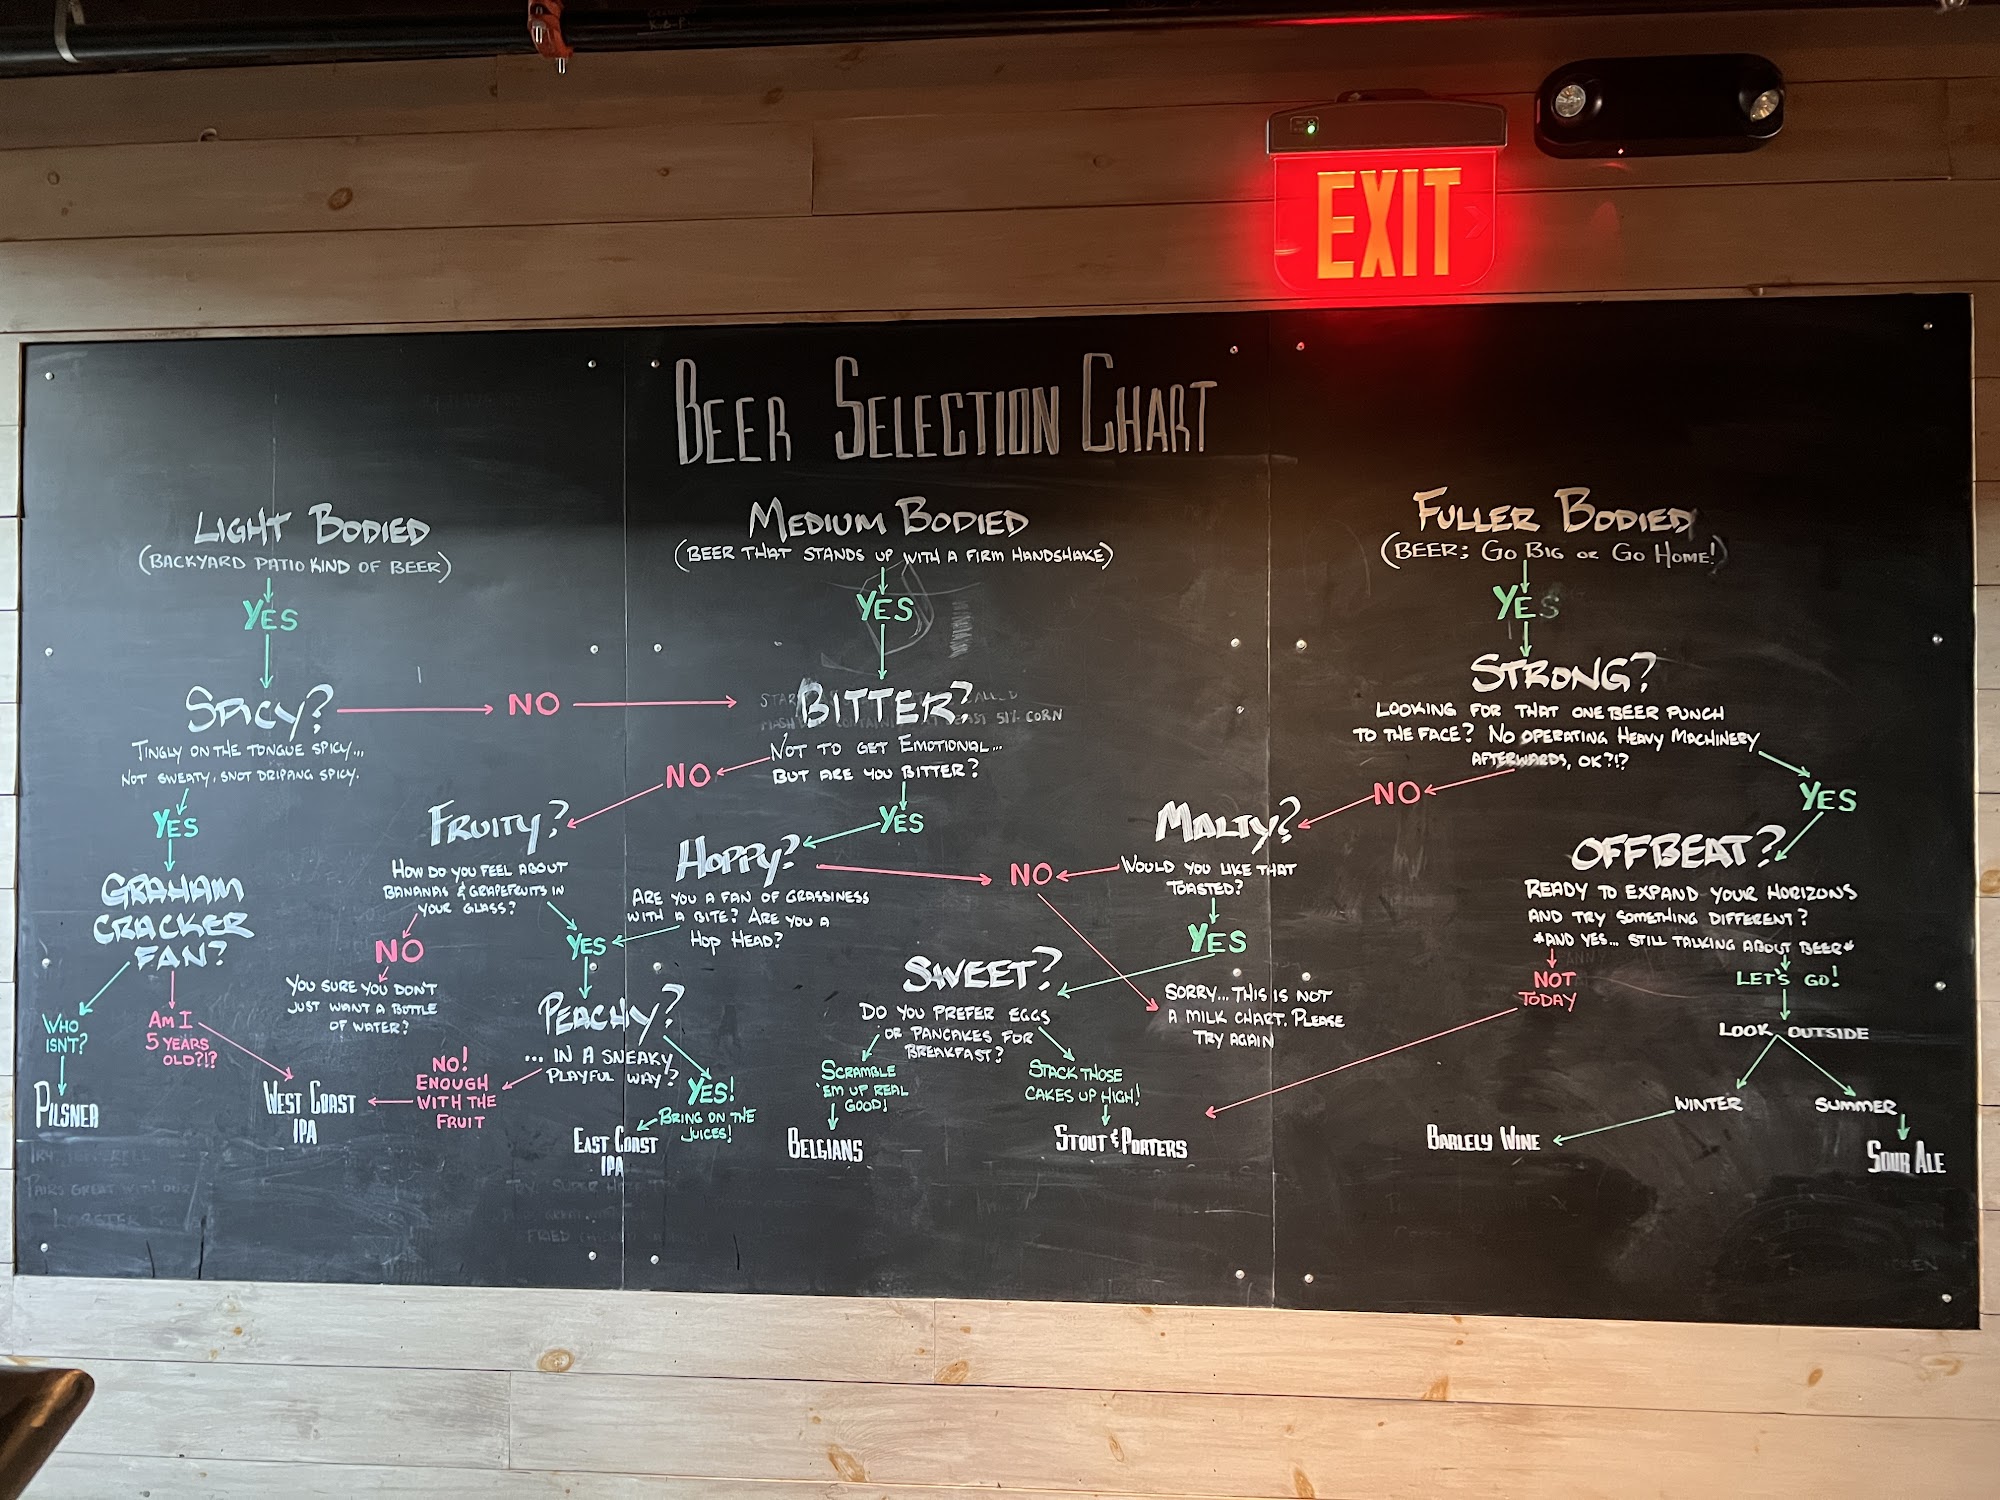 EXIT
BEER SELECTION CHART
LIGHT BODIED
(BACKYARD PATIO KIND OF BEER)
YES
SPICY?
TINGLY ON THE TONGUE SPICY...
NOT SWEATY, SNOT DRIPANG SPICY.
NO
YES
GRAHAM
CRACKER
FAN?
WHO
ISN'T?
PILSNER
AM I
5 YEARS
OLD?!?
WEST COAST
IPA
MEDIUM BODIED
(BEER THAT STANDS UP WITH A FIRM HANDSHAKE)
YES
BITTER?
51% CORN
NOT TO GET EMOTIONAL...
BUT ARE YOU BITTER?
NO
YES
FRUITY?
HOW DO YOU FEEL ABOUT
BANANAS & GRAPEFRUITS IN
YOUR GLASS?
NO
YOU SURE YOU DON'T
JUST WANT A BOTTLE
OF WATER?
YES
HOPPY?
ARE YOU A FAN OF GRASSINESS
WITH A BITE? ARE YOU A
HOP HEAD?
NO
PEACHY?
... IN A SNEAKY
PLAYFUL WAY?
NO!
ENOUGH
WITH THE
FRUIT
YES!
BRING ON THE
JUICES!
EAST COAST
IPA
FULLER BODIED
(BEER; GO BIG OR GO HOME!)
YES
STRONG?
LOOKING FOR THAT ONE BEER PUNCH
TO THE FACE? NO OPERATING HEAVY MACHINERY
AFTERWARDS, OK?!?
NO
YES
MALTY?
WOULD YOU LIKE THAT
TOASTED?
YES
SWEET?
DO YOU PREFER EGGS
OR PANCAKES FOR
BREAKFAST?
SCRAMBLE
'EM UP REAL
GOOD!
BELGIANS
STACK THOSE
CAKES UP HIGH!
STOUT & PORTERS
SORRY... THIS IS NOT
A MILK CHART. PLEASE
TRY AGAIN
OFFBEAT?
READY TO EXPAND YOUR HORIZONS
AND TRY SOMETHING DIFFERENT?
*AND YES... STILL TALKING ABOUT BEER*
NOT
TODAY
LET'S GO!
LOOK OUTSIDE
WINTER
SUMMER
BARLELY WINE
SOUR ALE
PAIRS GREAT WITH OUR
LOBSTER
FRIED